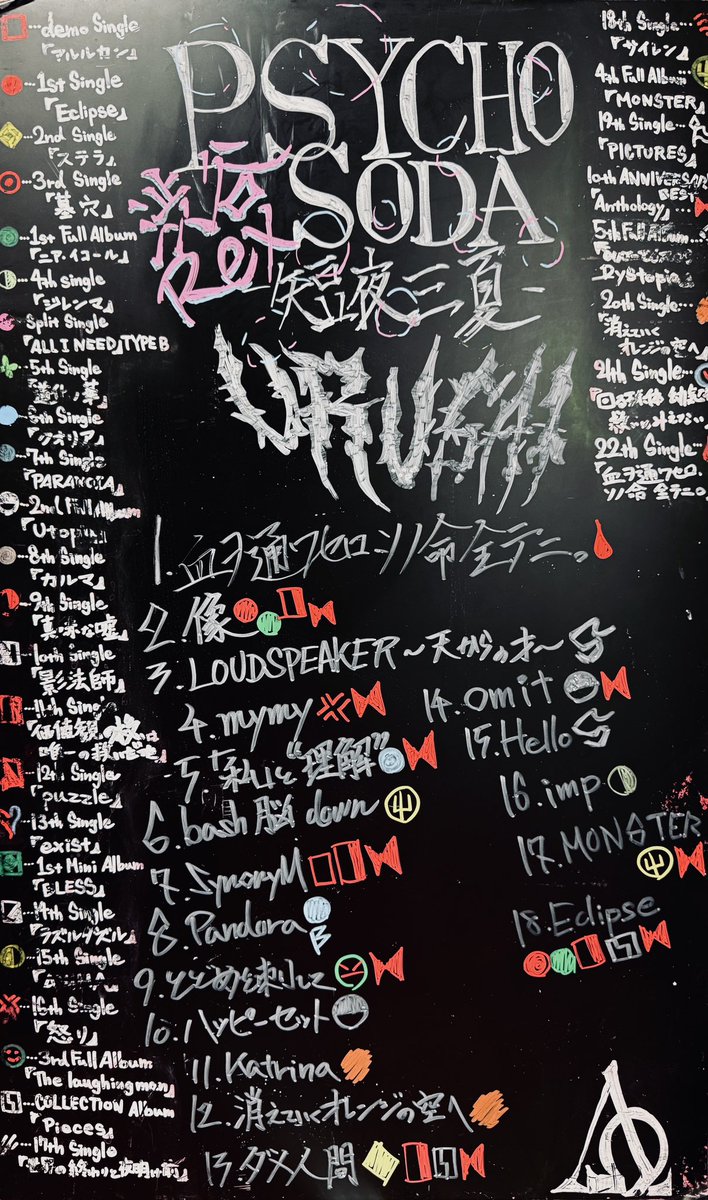 demo Single
『アルルカン』
1st Single
『Eclipse』
2nd Single
『ステラ』
3rd Single
『墓穴』
1st Full Album
『ニア・イコール』
4th single
『ジレンマ』
Split Single
『ALL I NEED』TYPE B
5th Single
6th Single
『クオリア』
7th Single
『PARANOIA』
2nd Full Album
『Utopia』
8th Single
『カルマ』
9th Single
『真っ赤な嘘』
10th Single
『影法師』
11th Single
『価値観の
唯一の救い
12th Single
『puzzle』
13th Single
『exist』
1st Mini Album
『BLESS』
14th Single
『ラズルダズル』
15th Single
16th Single
『怒り』
3rd Full Album
『The laughing man』
COLLECTION Album
『Pieces』
17th Single
『世界の終わりと夜明け前』
PSYCHO
SODA
Rex
-短夜三夏-
URUSAI
1. 血ヲ通ワセロ ソノ命全テニ。
2. 像
3. LOUDSPEAKER〜天からの才〜
4. mymy
5. 「私」と“理解”
6. bash 脳 down
7. SymoryM
8. Pandora
B
9. とどめを刺して
10. ハッピーセット
11. Katrina
12. 消えていくオレンジの空へ
13. ダメ人間
14. omit
15. Hello
16. imp
17. MONSTER
18. Eclipse
18th Single
『サイレン』
4th Full Album
『MONSTER』
19th Single
『PICTURES』
10th ANNIVERSARY
BEST
『Anthology』
5th Full Album
Dystopia』
20th Single
『消えていく
オレンジの空へ』
22th Single
『血ヲ通ワセロ
ソノ命 全テニ。』